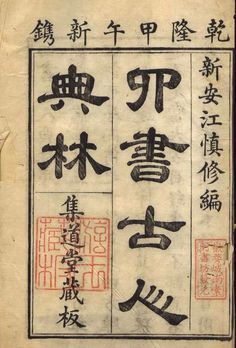 乾隆甲午新鐫
新安江慎修編
四書古人
典林
集道堂藏板